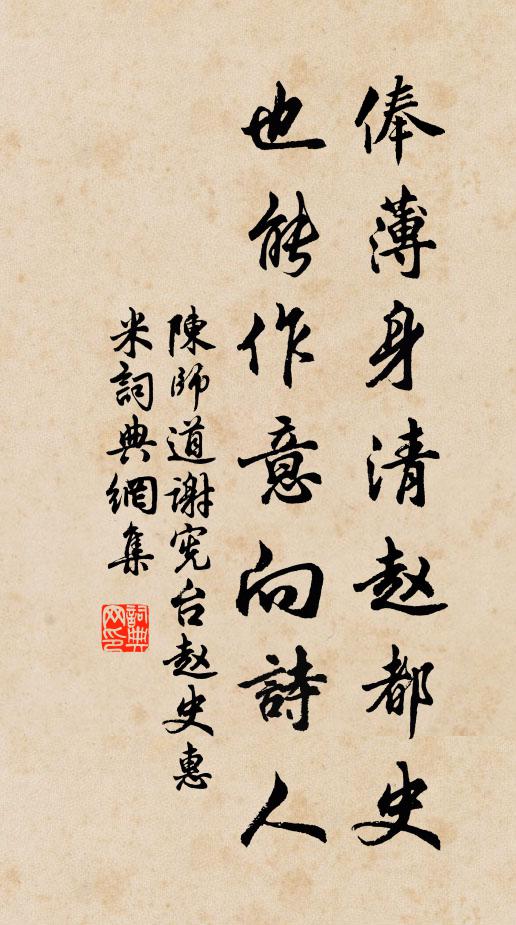 俸薄身清赵都史
也能作意向詩人
陳師道谢宪台赵史惠
米詞典網集
詞典網印